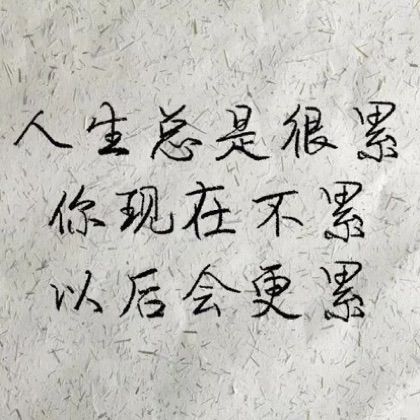 人生总是很累
你现在不累
以后会更累